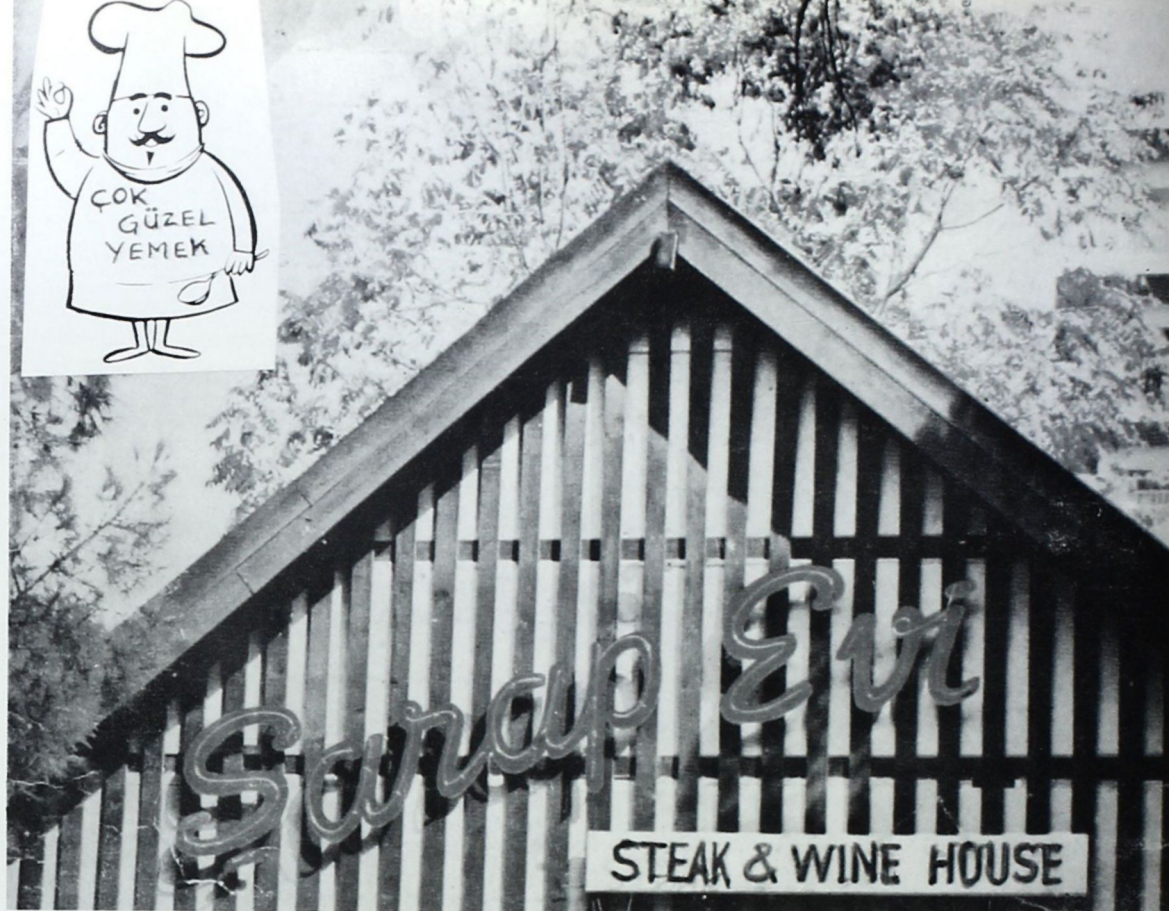 ÇOK
GÜZEL
YEMEK
Şarap Evi
STEAK & WINE HOUSE